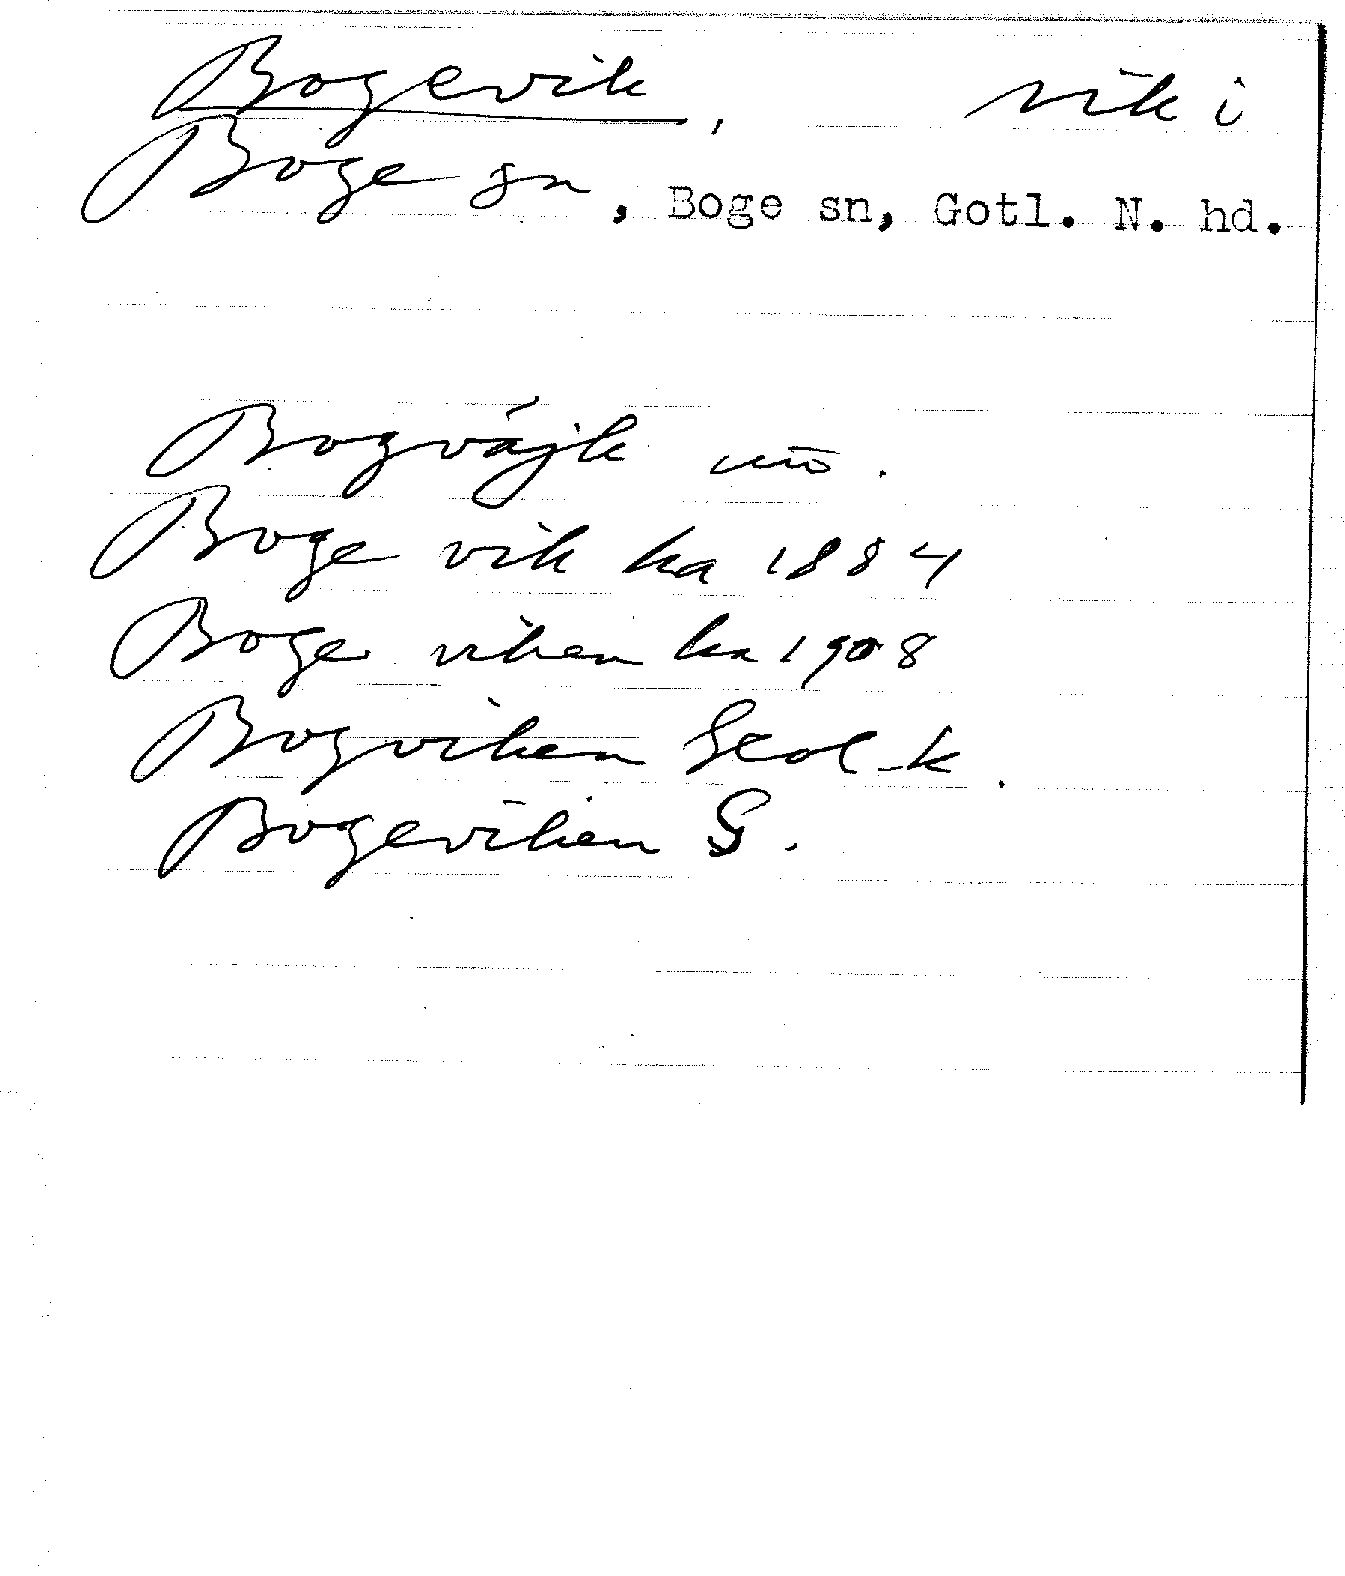 Bogevik, vik i
Boge sn, Boge sn, Gotl. N. hd.
Bogvájk uō.
Boge vik ka 1884
Boge viken ka 1908
Bogviken Geol-k.
Bogeviken S.